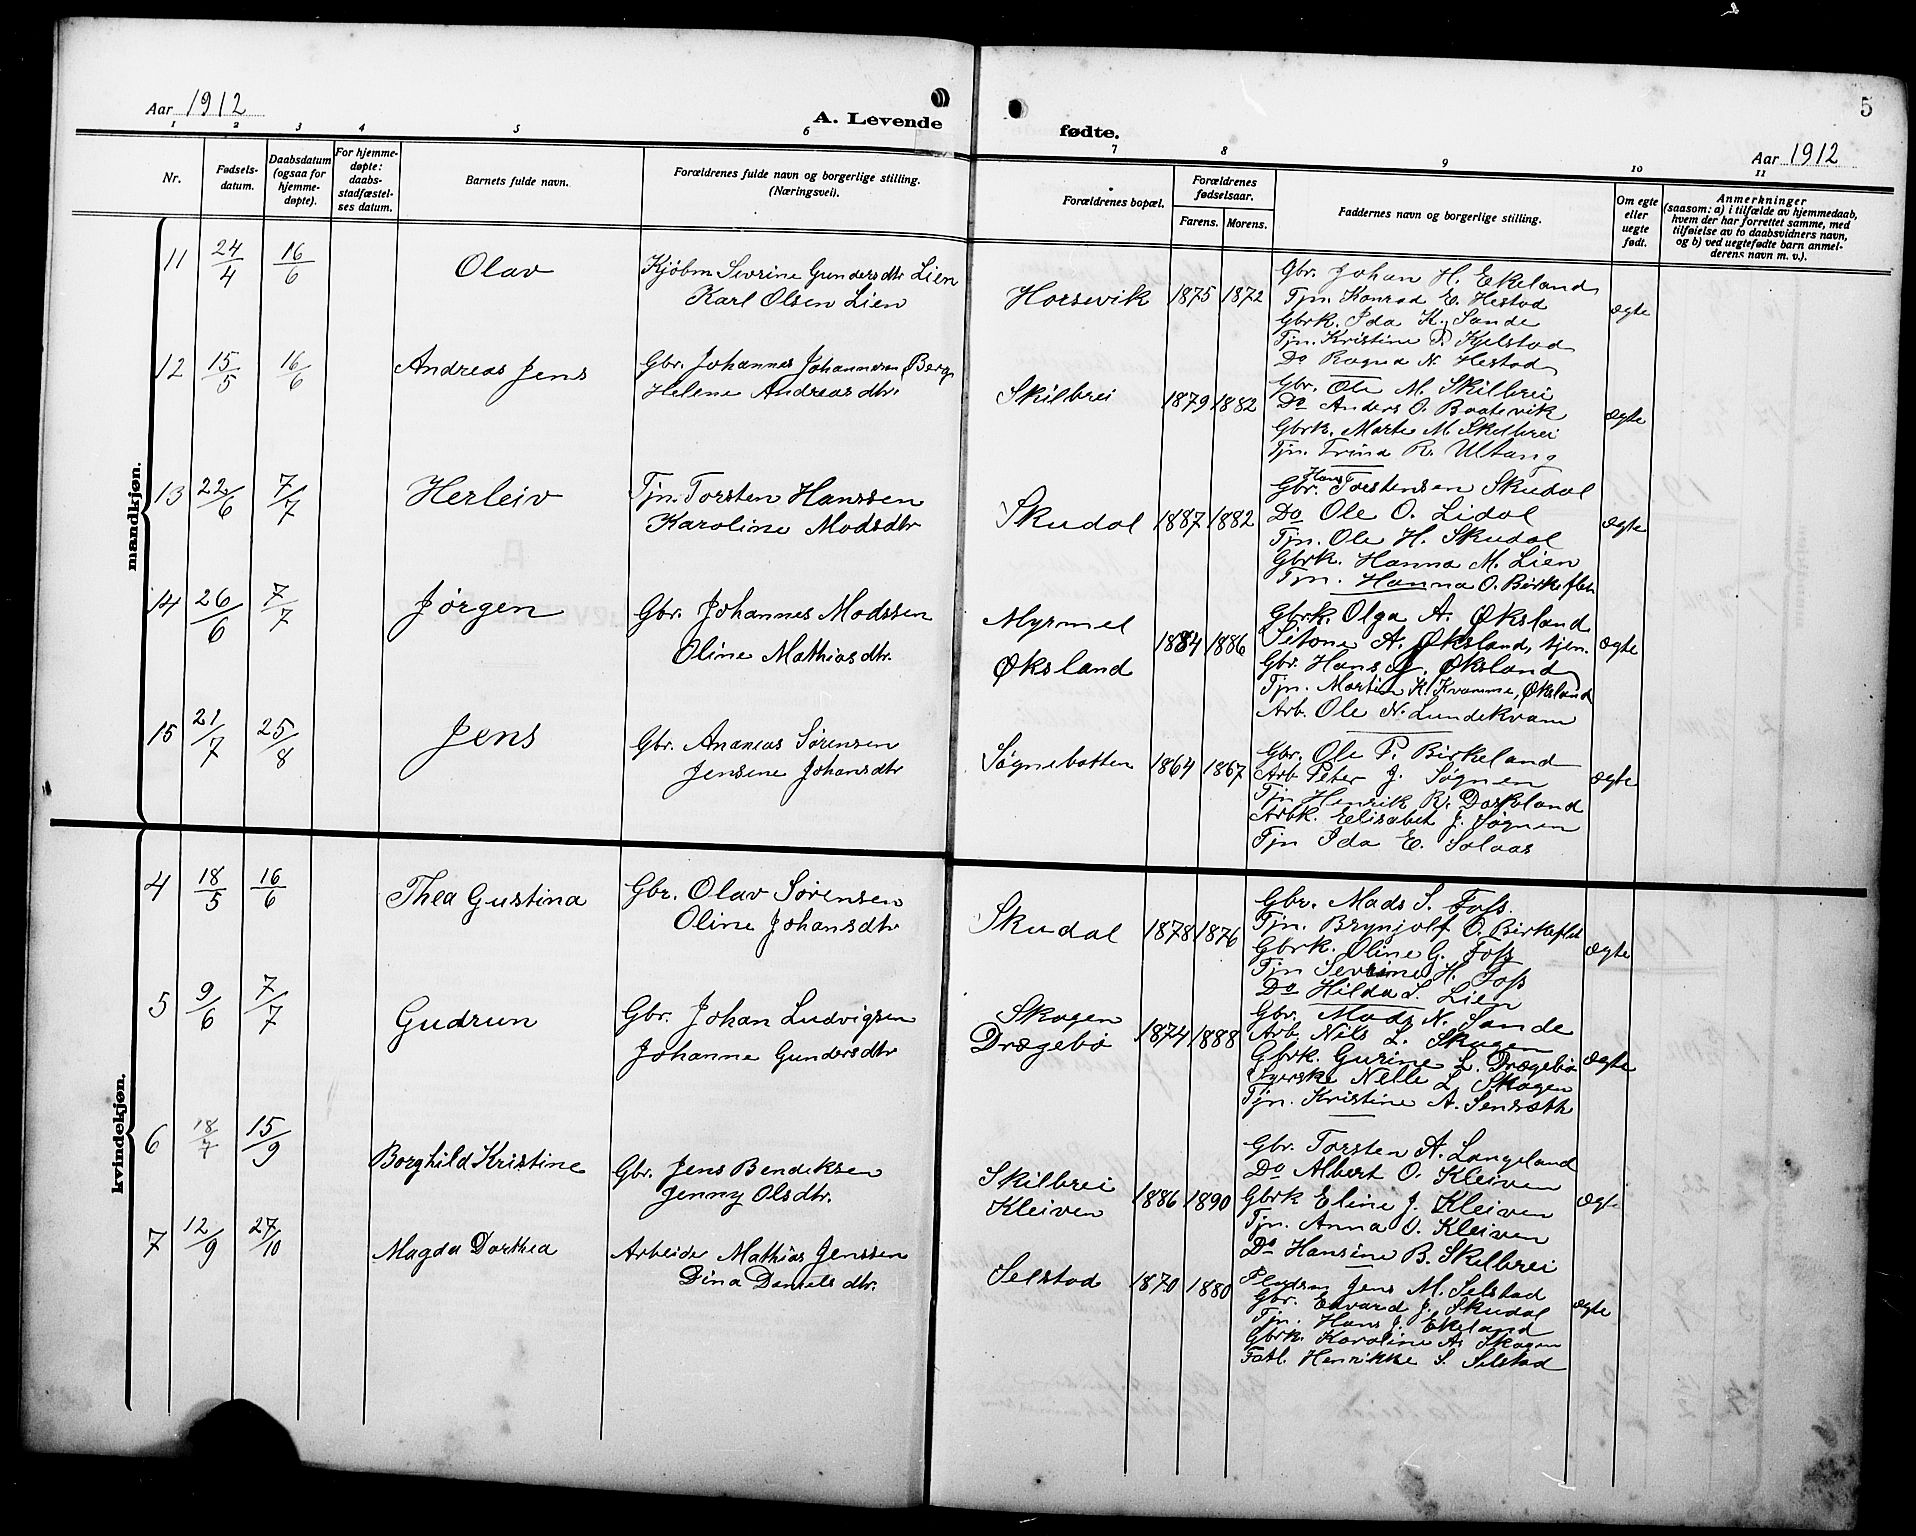 Aar 1912
A. Levende
fødte.
5
Aar 1912
1 2 3 4 5 6 7 8 9 10 11
Nr.
Fødsels-
datum.
Daabsdatum
(ogsaa for
hjemme-
døpte).
For hjemme-
døpte:
daabs-
stadfæstel-
ses datum.
Barnets fulde navn.
Forældrenes fulde navn og borgerlige stilling.
(Næringsvei).
Forældrenes bopæl.
Forældrenes
fødselsaar.
Farens. Morens.
Faddernes navn og borgerlige stilling.
Om egte
eller
uegte
født.
Anmerkninger
(saasom: a) i tilfælde av hjemmedaab,
hvem der har forrettet samme, med
tilføielse av to daabsvidners navn,
og b) ved uegtefødte barn anmel-
derens navn m. v.).
mandkjøn.
11 24/4 16/6 Olav
Kjøbm Sevrine Gundersdtr Lien
Karl Olsen Lien
Horsevik 1875 1872
Gbr. Johan H. Ekeland
Tjn. Konrad E. Hestad
Gbrk. Ida K. Sande
Tjn. Kristine P. Kjelstad
Do Ragna N. Hestad
ægte
12 15/5 16/6 Andreas Jens
Gbr. Johannes Johannesen Berge
Helene Andreasdtr.
Skilbrei 1879 1882
Gbr. Ole M. Skilbrei
Do Anders O. Baatevik
Gbrk. Marte M. Skilbrei
Tjn. Trina R. Ultang
ægte
13 22/6 7/7 Herleiv
Tjn. Torsten Hanssen
Karoline Madsdtr
Skudal 1887 1882
Hans
Gbr. Torstensen Skudal
Do Ole O. Lidal
Tjn. Ole H. Skudal
Gbrk. Hanna M. Lien
Tjn. Hanna O. Birkeflet
ægte
14 26/6 7/7 Jørgen
Gbr. Johannes Madssen
Oline Mathiasdtr.
Myrmel
Øksland
1884 1886
Gbrk. Olga A. Øksland
A. Øksland, tjen.
Gbr. Hans J. Øksland
Tjn. Martin K. Kvamme, Øksland
Arb. Ole N. Lundekvam
ægte
15 21/7 25/8 Jens
Gbr. Ananias Sørensen
Jensine Johansdtr
Søgnebotten 1864 1867
Gbr. Ole P. Birkeland
Arb. Peter J. Søgnen
Tjn Henrik R. Daskeland
Arbk. Elisabet J. Søgnen
Tjn Ida E. Solaas
ægte
kvindekjøn.
4 18/5 16/6 Thea Gustina
Gbr. Olav Sørensen
Oline Johansdtr
Skudal 1878 1876
Gbr. Mads S. Foss.
Tjn. Brynjolf O. Birkeflet
Gbrk. Oline G. Foss
Tjn Sevrine H. Foss
Do Hilda S. Lien
ægte
5 9/6 7/7 Gudrun
Gbr. Johan Ludvigsen
Johanne Gundersdtr
Skogen
Drægebø
1874 1888
Gbr. Mads N. Sande
Arb. Nils L. Skogen
Gbrk. Gurine L. Drægebø
Syerske Nelle L. Skogen
Tjn. Kristine A. Sendæth
ægte
6 18/7 15/9 Borghild Kristine
Gbr. Jens Bendiksen
Jenny Olsdtr.
Skilbrei
Kleiven
1886 1890
Gbr. Torsten A. Langeland
Do Albert O. Kleiven
Gbrk Eline J. Kleiven
Tjn. Anna O. Kleiven
Do Hansine B. Skilbrei
ægte
7 12/9 27/10 Magda Dorthea
Arbeider Mathias Jenssen
Dina Danielsdtr.
Selstad 1870 1880
Pladsm Jens M. Selstad
Gbr. Edvard J. Skudal
Tjn. Hans J. Ekeland
Gbrk. Karoline A. Skogen
Fatl. Henrikke S. Selstad
ægte